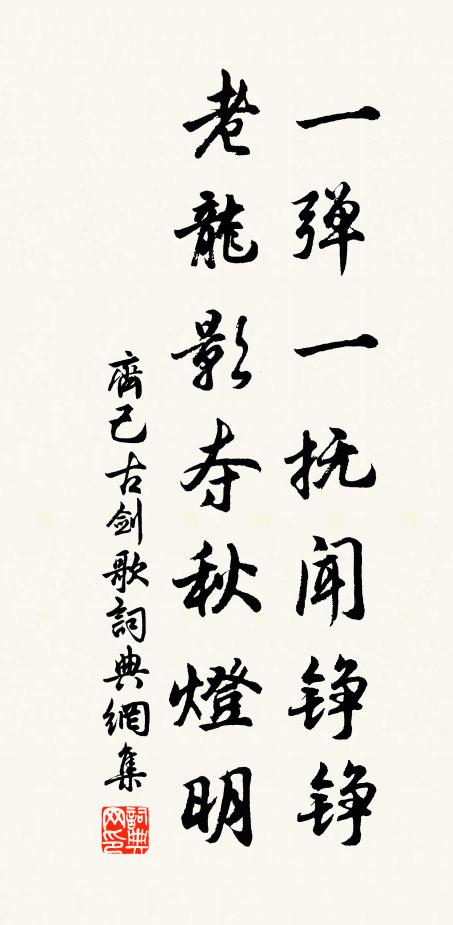 一弹一抚闻铮铮
老龍影夺秋燈明
齊己古剑歌詞典網集
詞典网印